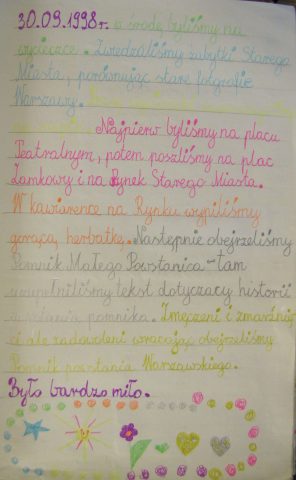 30.09.1998r. w środę byliśmy na
wycieczce. Zwiedzaliśmy zabytki Starego
Miasta, porównując stare fotografie
Warszawy.
Najpierw byliśmy na placu
Teatralnym, potem poszliśmy na plac
Zamkowy i na Rynek Starego Miasta.
W kawiarence na Rynku wypiliśmy
gorącą herbatkę. Następnie obejrzeliśmy
Pomnik Małego Powstańca - tam
uzupełniliśmy tekst dotyczący historii
powstania pomnika. Zmęczeni i zmarznię-
ci ale zadowoleni wracając obejrzeliśmy
Pomnik powstania Warszawskiego.
Było bardzo miło.